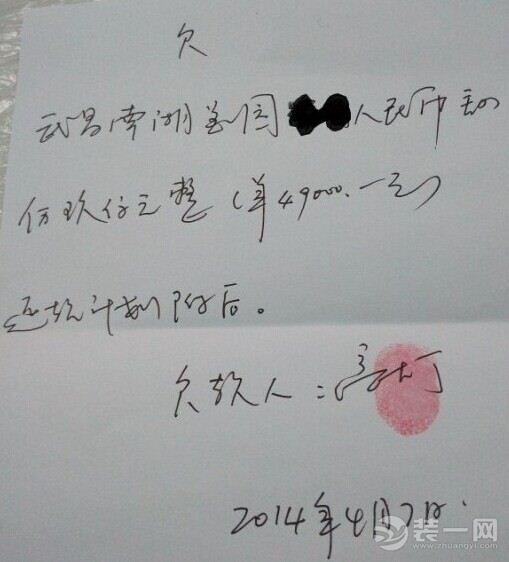 欠
武昌南湖花园 人民币肆
万玖仟元整(¥49000.一元)
还款计划附后。
欠款人:
2014年4月7日.
装一网
www.zhuangyi.com